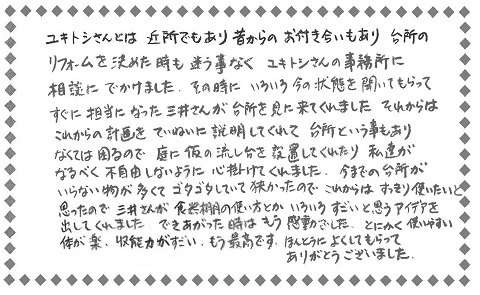 ユキトシさんとは 近所でもあり 昔からの お付き合いもあり 台所の
リフォームを 決めた時も 迷う事なく ユキトシさんの事務所に
相談に でかけました。その時に いろいろ今の状態を聞いてもらって
すぐに担当になった三井さんが台所を見に来てくれました それからは
これからの計画を ていねいに説明してくれて 台所という事もあり
なくては 困るので 庭に 仮の流し台を 設置してくれたり 私達が
なるべく 不自由しないように 心掛けてくれました。今までの台所が
いらない物が多くてゴタゴタしていて狭かったので これからは すっきり使いたいと
思ったので 三井さんが 食器棚の使い方とか いろいろ すごいと思うアイデアを
出してくれました。できあがった時は もう 感動でした。とにかく使いやすい
体が楽、収能力がすごい。もう最高です。ほんとうに よくしてもらって
ありがとうございました。